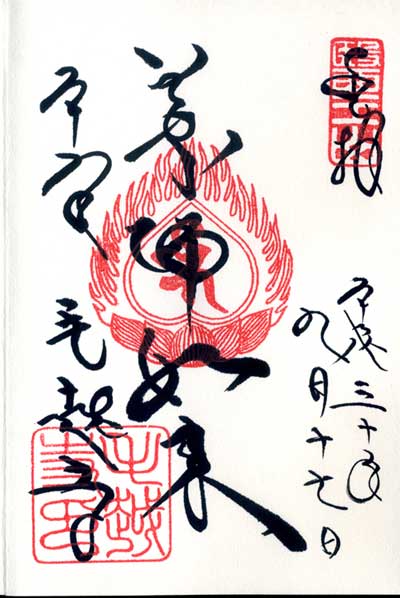 奉拝
平成三十年
九月十七日
薬師如来
平泉
毛越寺
毛越寺印